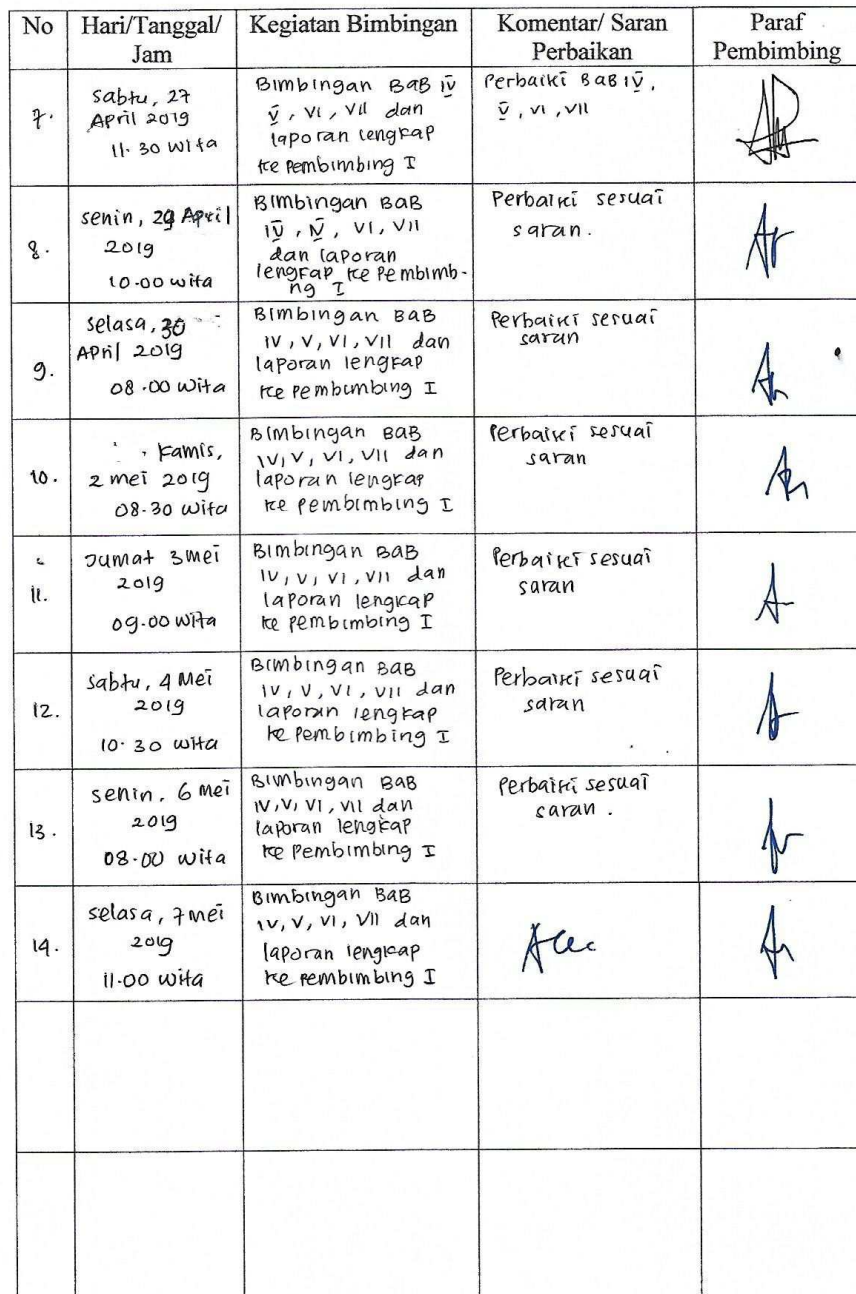 No Hari/Tanggal/ Jam Kegiatan Bimbingan Komentar/ Saran Perbaikan Paraf Pembimbing
7.
Sabtu, 27
April 2019
11.30 wita
Bimbingan BAB IV
V, VI, VII dan
laporan lengkap
ke Pembimbing I
Perbaiki BAB IV,
V, VI, VII
8.
Senin, 29 April
2019
10.00 wita
Bimbingan BAB
IV, V, VI, VII
dan laporan
lengkap ke Pembimb-
ng I
Perbaiki sesuai
saran.
9.
Selasa, 30
April 2019
08.00 wita
Bimbingan BAB
IV, V, VI, VII dan
laporan lengkap
ke Pembimbing I
Perbaiki sesuai
saran
10.
Kamis,
2 mei 2019
08.30 wita
Bimbingan BAB
IV, V, VI, VII dan
laporan lengkap
ke Pembimbing I
Perbaiki sesuai
saran
11.
Jumat 3 mei
2019
09.00 wita
Bimbingan BAB
IV, V, VI, VII dan
laporan lengkap
ke Pembimbing I
Perbaiki sesuai
saran
12.
Sabtu, 4 Mei
2019
10.30 wita
Bimbingan BAB
IV, V, VI, VII dan
laporan lengkap
ke Pembimbing I
Perbaiki sesuai
saran
13.
Senin, 6 mei
2019
08.00 wita
Bimbingan BAB
IV, V, VI, VII dan
laporan lengkap
ke Pembimbing I
Perbaiki sesuai
saran.
14.
Selasa, 7 mei
2019
11.00 wita
Bimbingan BAB
IV, V, VI, VII dan
laporan lengkap
ke Pembimbing I
Acc